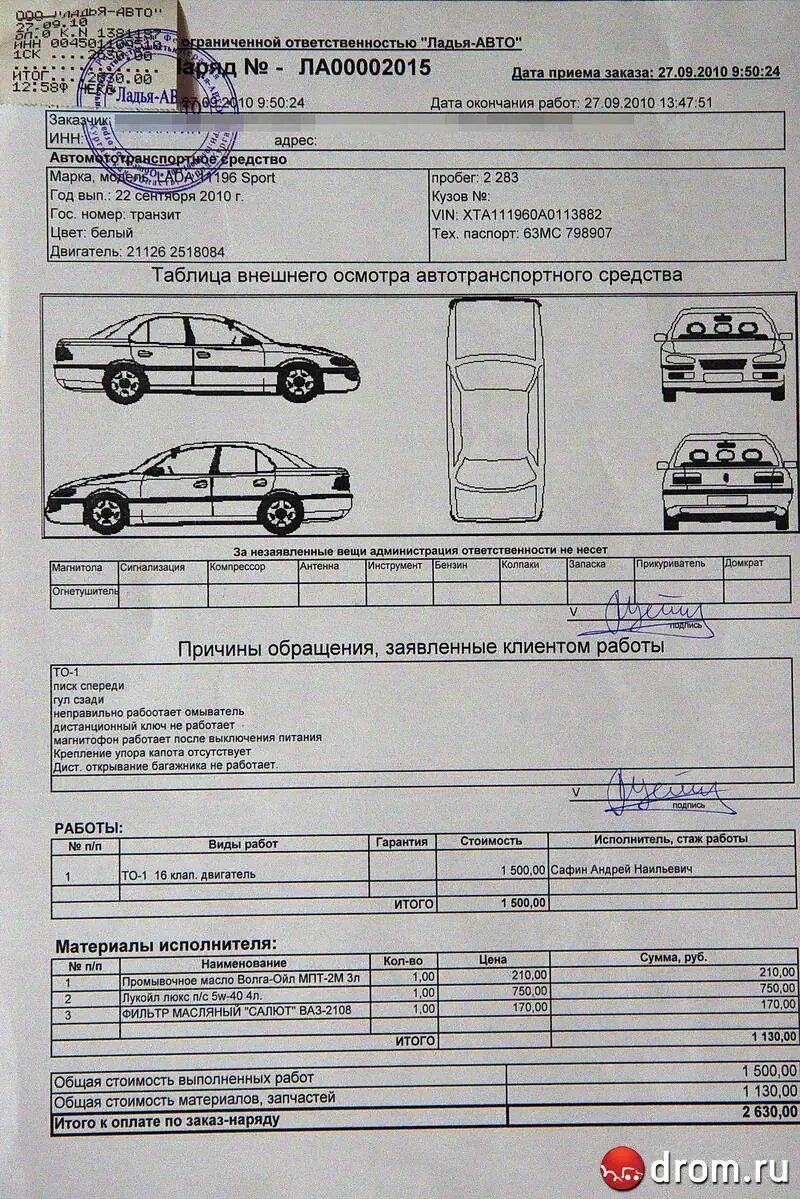 ООО "ЛАДЬЯ-АВТО"
27.09.10
ИНН
1СК
ИТОГ
12:58
ограниченной ответственностью "Ладья-АВТО"
№ - ЛА00002015
Дата приема заказа: 27.09.2010 9:50:24
27.09.2010 9:50:24
Дата окончания работ: 27.09.2010 13:47:51
Заказчик:
ИНН: адрес:
Автомототранспортное средство
Марка, модель: LADA 11196 Sport
пробег: 2 283
Год вып.: 22 сентября 2010 г.
Кузов №:
Гос. номер: транзит
VIN: XTA111960A0113882
Цвет: белый
Тех. паспорт: 63МС 798907
Двигатель: 21126 2518084
Таблица внешнего осмотра автотранспортного средства
За незаявленные вещи администрация ответственности не несет
Магнитола Сигнализация Компрессор Антенна Инструмент Бензин Колпаки Запаска Прикуриватель Домкрат
Огнетушитель
V
подпись
Причины обращения, заявленные клиентом работы
ТО-1
писк спереди
гул сзади
неправильно рабоотает омыватель
дистанционный ключ не работает
магнитофон работает после выключения питания
Крепление упора капота отсутствует
Дист. открывание багажника не работает.
V
подпись
РАБОТЫ:
№ п/п Виды работ Гарантия Стоимость Исполнитель, стаж работы
1 ТО-1 16 клап. двигатель 1 500,00 Сафин Андрей Наильевич
ИТОГО 1 500,00
Материалы исполнителя:
№ п/п Наименование Кол-во Цена Сумма, руб.
1 Промывочное масло Волга-Ойл МПТ-2М 3л 1,00 210,00 210,00
2 Лукойл люкс п/с 5w-40 4л. 1,00 750,00 750,00
3 ФИЛЬТР МАСЛЯНЫЙ "САЛЮТ" ВАЗ-2108 1,00 170,00 170,00
ИТОГО 1 130,00
Общая стоимость выполненных работ 1 500,00
Общая стоимость материалов, запчастей 1 130,00
Итого к оплате по заказ-наряду 2 630,00
drom.ru